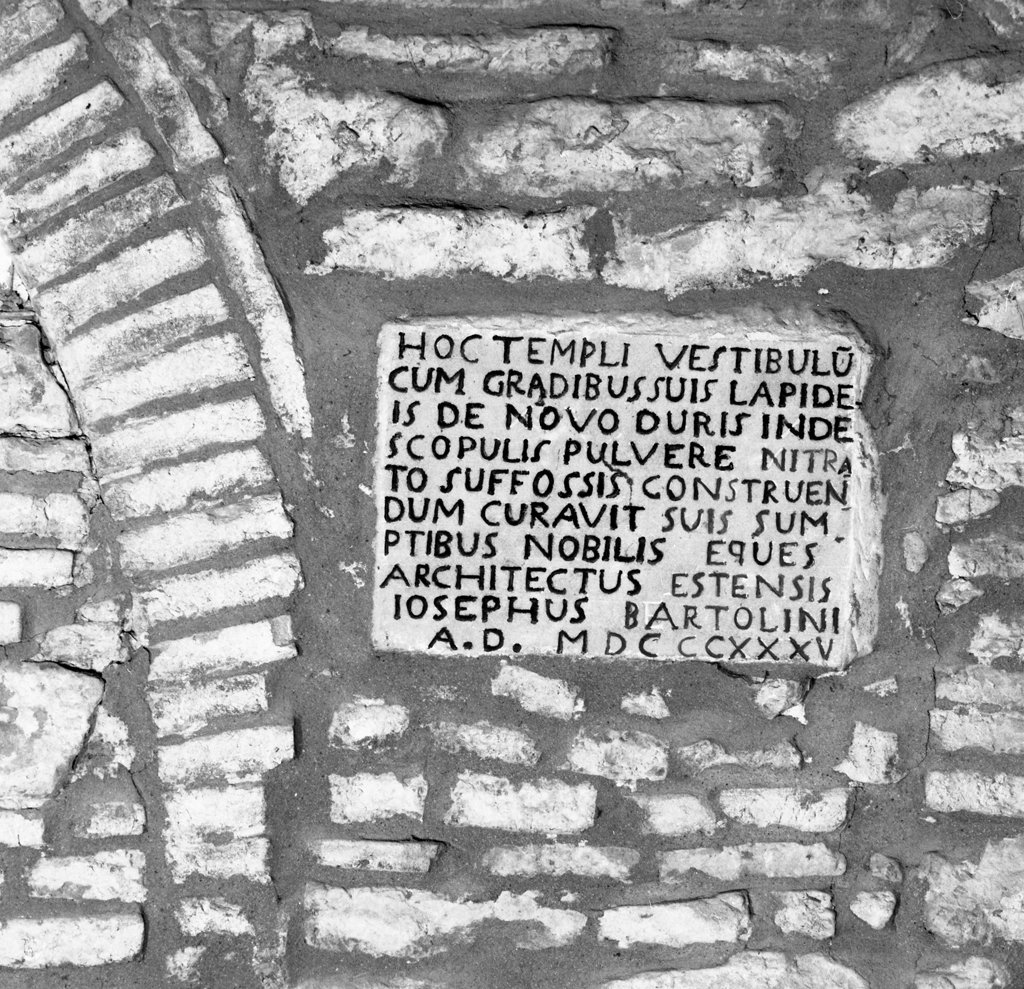 HOC TEMPLI VESTIBULŪ
CUM GRADIBUS SUIS LAPIDE-
IS DE NOVO DURIS INDE
SCOPULIS PULVERE NITRA
TO SUFFOSSIS CONSTRUEN
DUM CURAVIT SUIS SUM-
PTIBUS NOBILIS EQUES
ARCHITECTUS ESTENSIS
IOSEPHUS BARTOLINI
A.D. MDCCCCXXXV